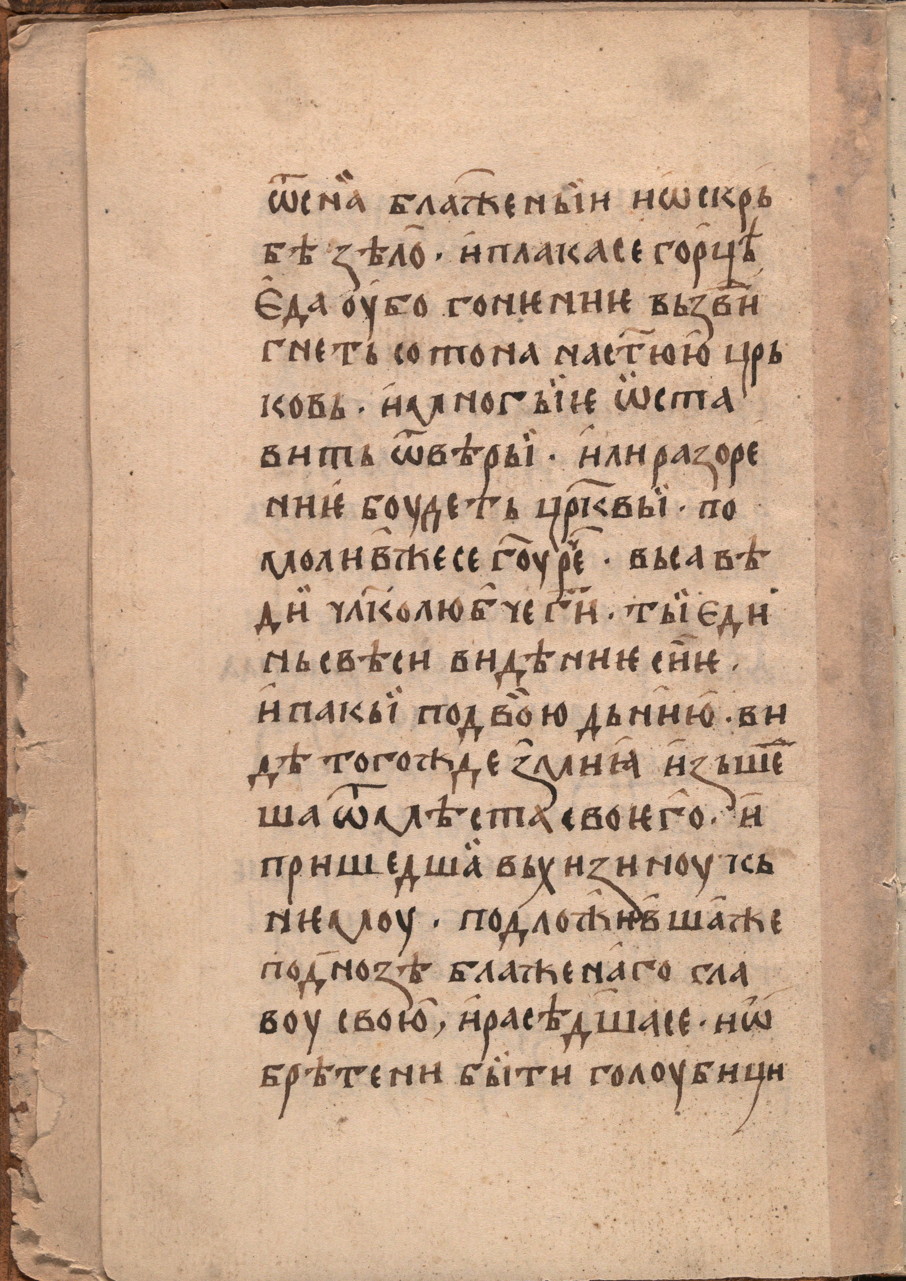 ѿсна блаженыи и ѡскрь
бѣ зѣло · и плака се горцѣ
Єда оубо гонѥниѥ вьзви
гнеть сотона на ст҃ую цр҃ь
ковь · и многыѥ ѡста
вить ѿ вѣры · или разоре
ниѥ боудеть цр҃квы · по
молив же се г҃оу реⷱ҇ · вьса вѣ
ди чл҃колюбче г҃и · ты єди
нь свѣси видѣниѥ сиѥ ·
и пакы по двою дьнию · ви
дѣ тогожде змиꙗ изьше
ша ѿ мѣста своѥго · и
пришедша вь хизиноу кь
нѥмоу · подложивша же
под нозѣ блаженаго гла
воу свою, и расѣдша се · и ѡ
брѣтени быти голоубици